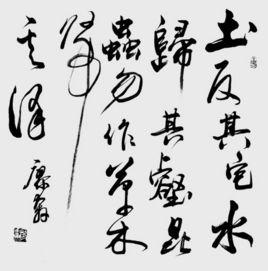 土反其宅水
歸其壑昆
蟲勿作草木
歸
其澤
康